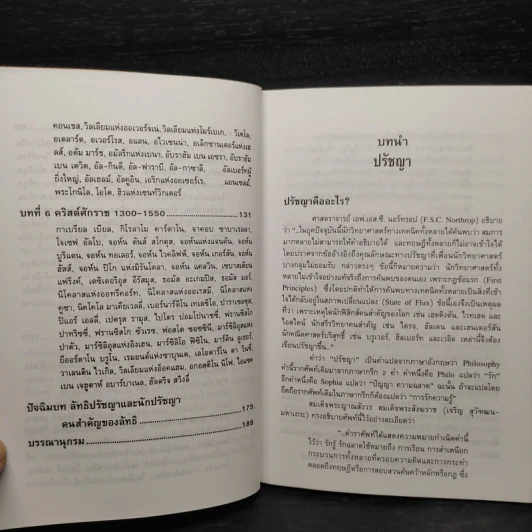 คอนเชส, วิลเลียมแห่งออเวอร์จเน่, วิลเลียมแห่งโมร์เบเก, วิเตโล,
อเดลาร์ด, อเวอร์โรส, อแลน, อไวเซนน่า, อเล็กซานเดอร์แห่งเฮ
ลส์, อดัม มาร์ช, อมัลริกแห่งเบนา, อับราฮัม เบน เอซรา, อับราฮัม
เบน เดวิต, อัล-กินดี, อัล-ฟาราบี, อัล-กาซาลี, อัลเบอร์ทมู้
ยิ่งใหญ่, อัลเฮลม์, อัลคูอิน, เอริกแห่งออเซร์เร, แอนเซลม์,
พระโกนิโล, โอโด, ฮิวแห่งเซนท์วิกเตอร์
บทที่ 6 คริสต์ศักราช 1300-1550 131
กาเบรียล เบียล, กิโรลาโม คาร์ดาโน, จาคอบ ซาบาเรลลา,
โจเซฟ อัลโบ, จอห์น ดันส์ สโกตุส, จอห์นแห่งแจนดัน, จอห์น
บูริแดน, จอห์น ทอเลอร์, จอห์น ไวคลิฟฟ์, จอห์น เกอร์สัน, จอห์น
ฮัสส์, จอห์น ปิโก แห่งมิรันโดลา, จอห์น แคลวิน, เซบาสเตียน
แฟร็งค์, เดซิเดอริอุส อีรัสมุส, ธอมัส อะเกมปิส, ธอมัส มอร์,
นิโคลาสแห่งออทรีคอร์ท, นิโคลาสแห่งโอเรสเม, นิโคลาสแห่ง
คูซา, นิคโคโล มาคิอาเวลลี, เบอร์นาร์ดิโน เทเลซิโอ, ปาราเซลซุส,
ปิแอร์ เอลลี่, เปตรุส รามุส, ปิโตร ปอมโปนาซซี่, ฟรานซิสโก
ปาทริซซี่, ฟรานซิสโก ซัวเรซ, ฟอสโต ซอซซินี, มาร์ซิลิอุสแห่ง
ปาดัว, มาร์ซิลิอุสแห่งอิงเฮน, มาร์ซิลิโอ ฟิซิโน, มาร์ติน ลูเธอร์,
ยีออร์ดาโน บรูโน, เรมอนด์แห่งซาบุนเด, เลโอดาร์โน ดา วินชี่,
วาเลนติน ไวเกิล, วิลเลียมแห่งอ็อคแฮม, อกอสติโน นิโฟ, ไอแซค
เบน เจฮูดาห์ อบาร์บาเนล, ฮัลดริช สวิงลี่
ปัจฉิมบท ลัทธิปรัชญาและนักปรัชญา
คนสำคัญของลัทธิ 175
บรรณานุกรม 188
บทนำ
ปรัชญา
ปรัชญาคืออะไร?
ศาสตราจารย์ เอฟ.เอส.ซี. นอร์ทรอป (F.S.C. Northrop) อธิบาย
ว่า "..ในยุคปัจจุบันนี้นักวิทยาศาสตร์ทางเทคนิคทั้งหลายได้ค้นพบว่า สมการ
มากหลายไม่สามารถให้คำอธิบายได้ และทฤษฎีทั้งหลายก็ไม่อาจเข้าใจได้
โดยปราศจากข้ออ้างอิงถึงคุณลักษณะทางปรัชญาที่เพื่อนนักวิทยาศาสตร์
บางกลุ่มไม่ยอมรับ กล่าวตรงๆ ข้อนี้ก็หมายความว่า นักวิทยาศาสตร์ทั้ง
หลายไม่เข้าใจอย่างแท้จริงถึงการค้นพบของตนเอง เพราะกฎข้อแรก (First
Principles) ซึ่งโดยปกติทำให้การค้นพบทางเทคนิคทั้งหลายเป็นสิ่งที่เข้าใจ
ได้กลับอยู่ในสภาพเปลี่ยนแปลง (State of Flux) ข้อนี้เองซึ่งเป็นเหตุผล
ที่ว่า เพราะเหตุใดนักฟิสิกส์คนสำคัญของโลก เช่น เฮดดิงตัน, ไวทเฮด และ
ไอสไตน์ นักสรีรวิทยาคนสำคัญ เช่น ไดรอ์ช, ฮัลเดน และเฮนเดอร์สัน
นักคณิตศาสตร์บริสุทธิ์ เช่น บรูเวอร์, ฮิลเบอร์ท และเวอิล เหล่านี้จึงต้อง
เรียนปรัชญา..."
คำว่า "ปรัชญา" เป็นคำแปลจากภาษาอังกฤษว่า Philosophy
คำนี้รากศัพท์เดิมมาจากภาษากรีก 2 คำ คำหนึ่งคือ Philo แปลว่า "รัก"
อีกคำหนึ่งคือ Sophia แปลว่า "ปัญญา ความฉลาด" ฉะนั้น ถ้าจะแปลโดย
ยึดถือรากศัพท์เดิมในภาษากรีกก็ต้องแปลว่า "การรักความรู้"
สมเด็จพระญาณสังวร สมเด็จพระสังฆราช (เจริญ สุวัฑฒน-
มหาเถระ) ทรงอธิบายศัพท์นี้ไว้อย่างละเอียดว่า
"...ตำราศัพท์ได้แสดงความหมายกำเนิดคำนี้
ไว้ว่า รักรู้ รักฉลาดใช้หมายถึง การเรียน การสำเหนียก
กระบวนการทั้งหลายที่ครอบความคิดและการกระทำ
ตลอดถึงทฤษฎีหรือการสอบสวนค้นคว้าหลักหรือกฎ ซึ่ง